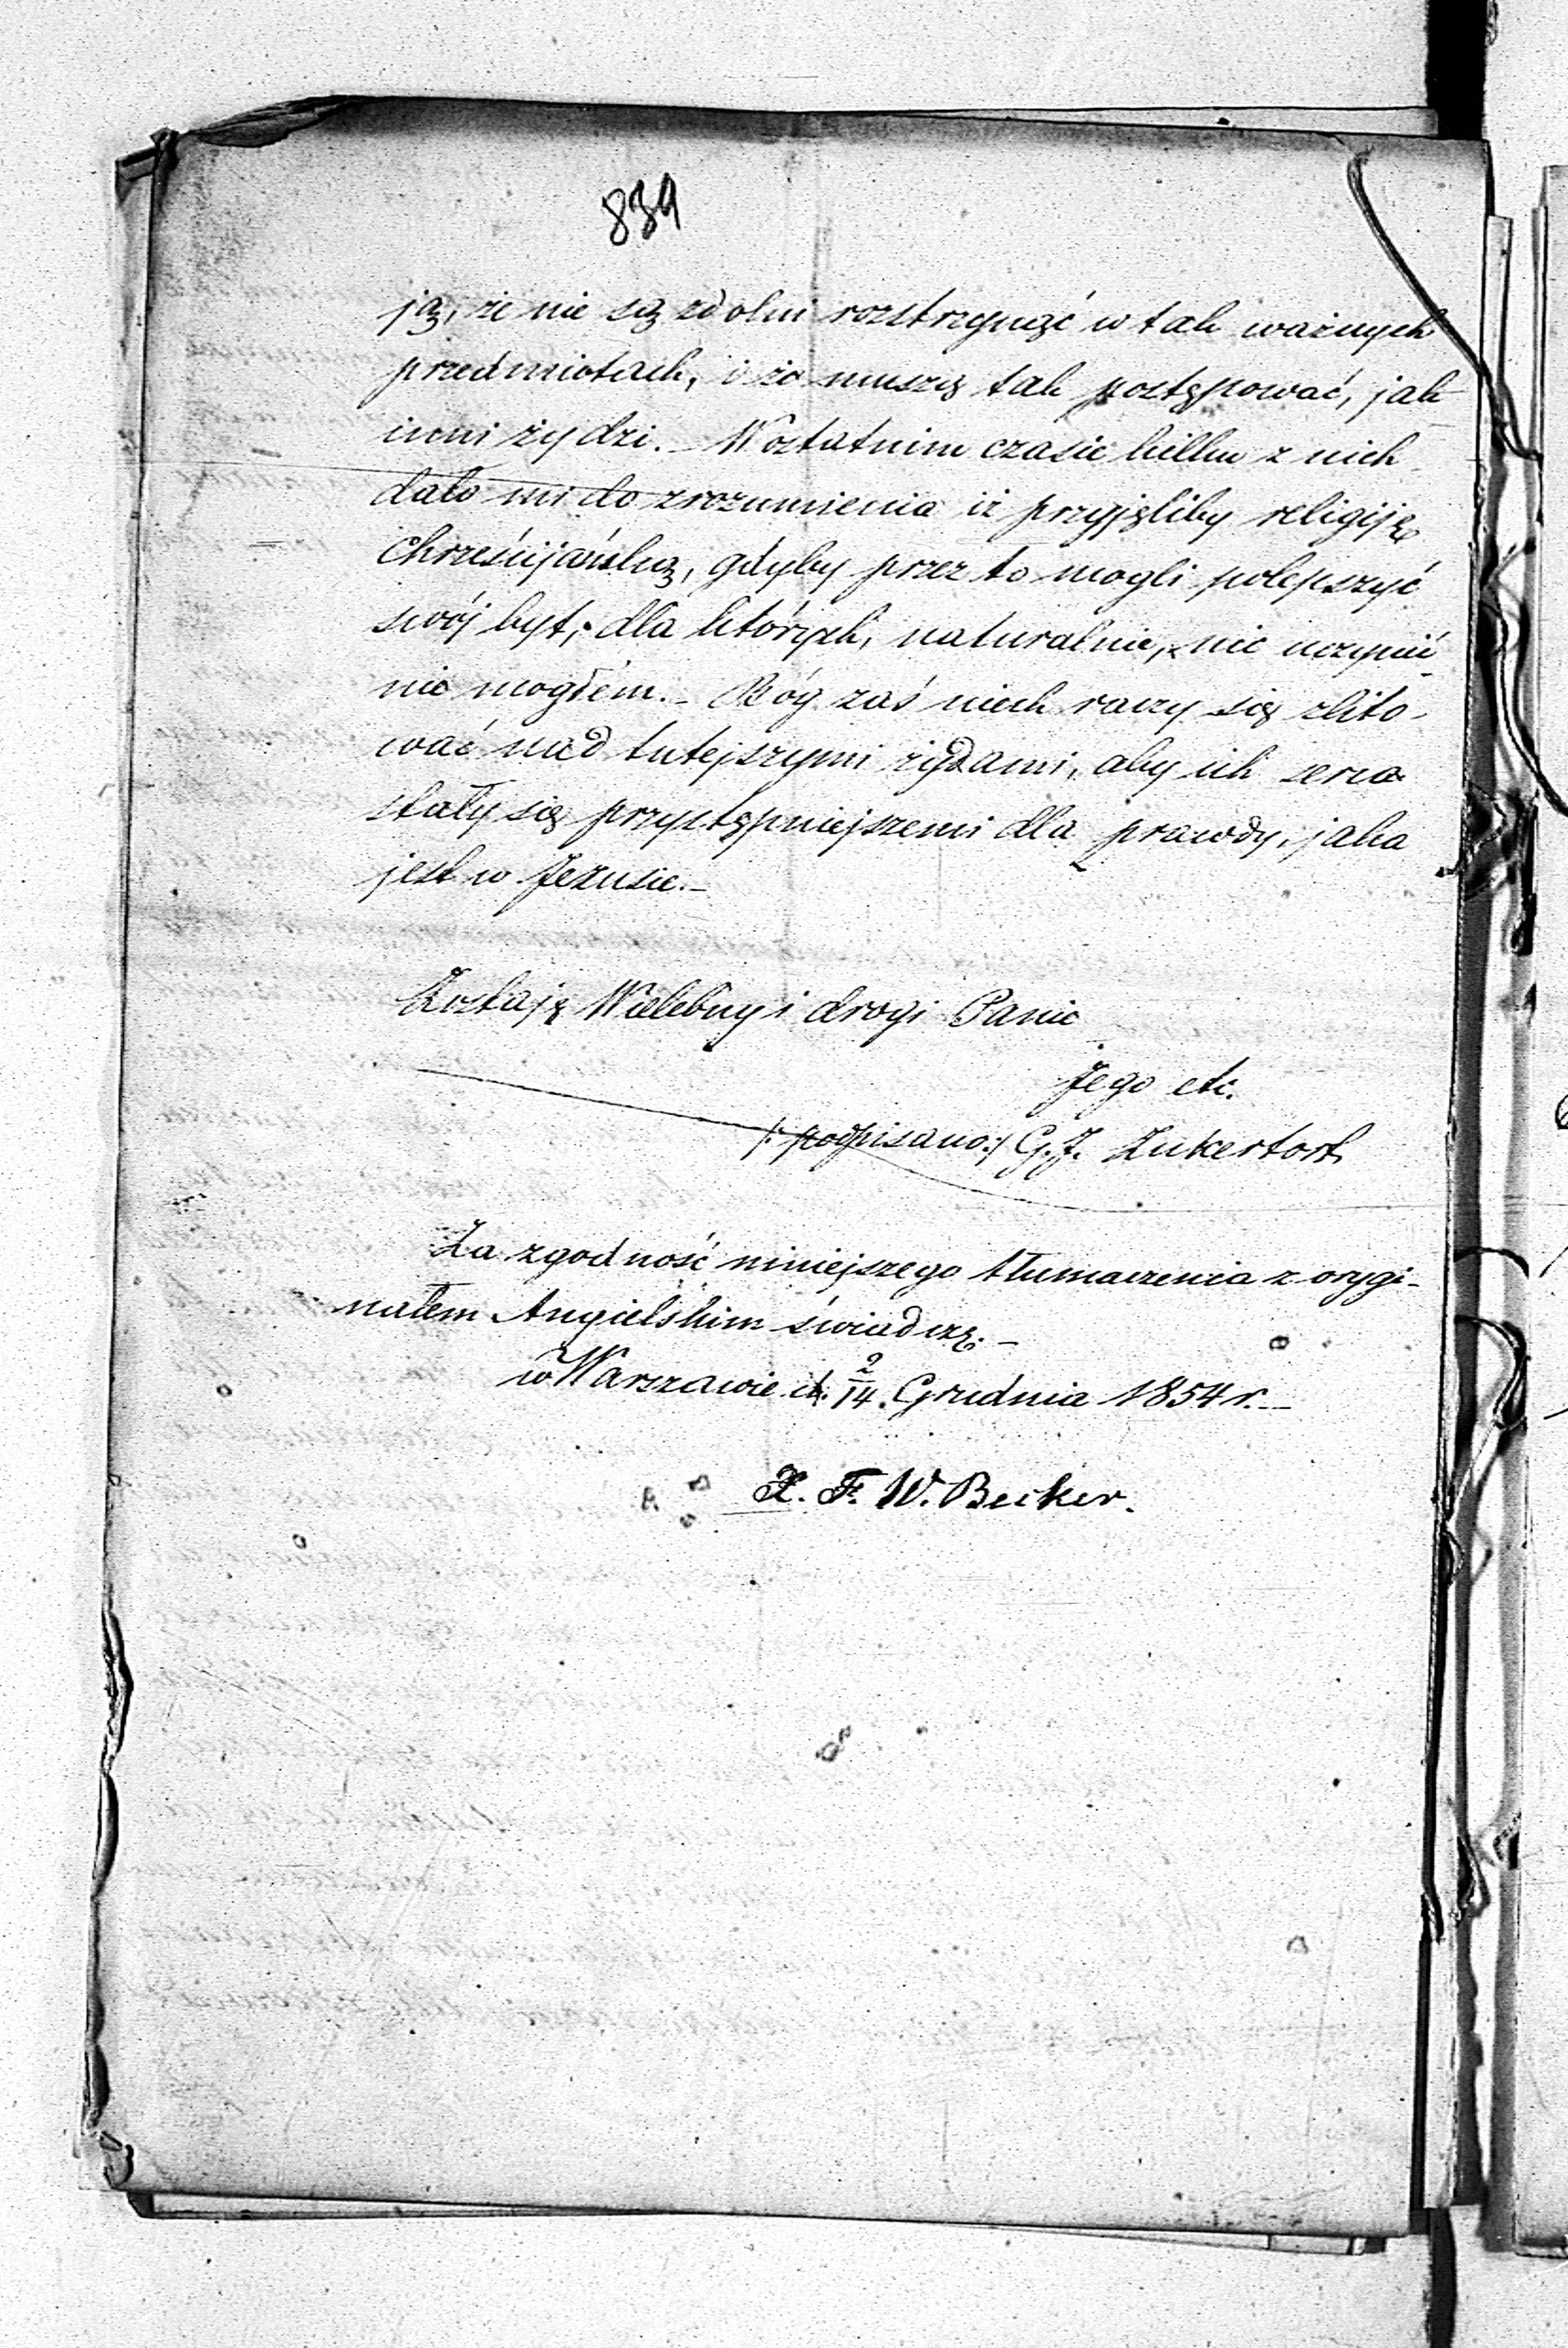 839
ją, że nie są zdolni rozstrzygnąć w tak ważnych
przedmiotach, i że muszą tak postępować, jak
inni żydzi. – W ostatnim czasie kilku z nich
dało mi do zrozumienia iż przyjęliby religiję
chrześcijańską, gdyby przez to mogli polepszyć
swój byt, dla których, naturalnie, nic uczynić
nie mogłem. – Bóg zaś niech raczy się zlito-
wać nad tutejszymi żydami, aby ich serca
stały się przystępniejszemi dla prawdy, jaka
jest w Jezusie. –
Zostaję Wielebny i drogi Panie
Jego etc.
/: podpisano :/ G. J. Zukertort.
Za zgodność niniejszego tłumaczenia z orygi-
nałem Angielskim świadczę. –
w Warszawie d. 2/14. Grudnia 1854 r. –
X. F. W. Becker.